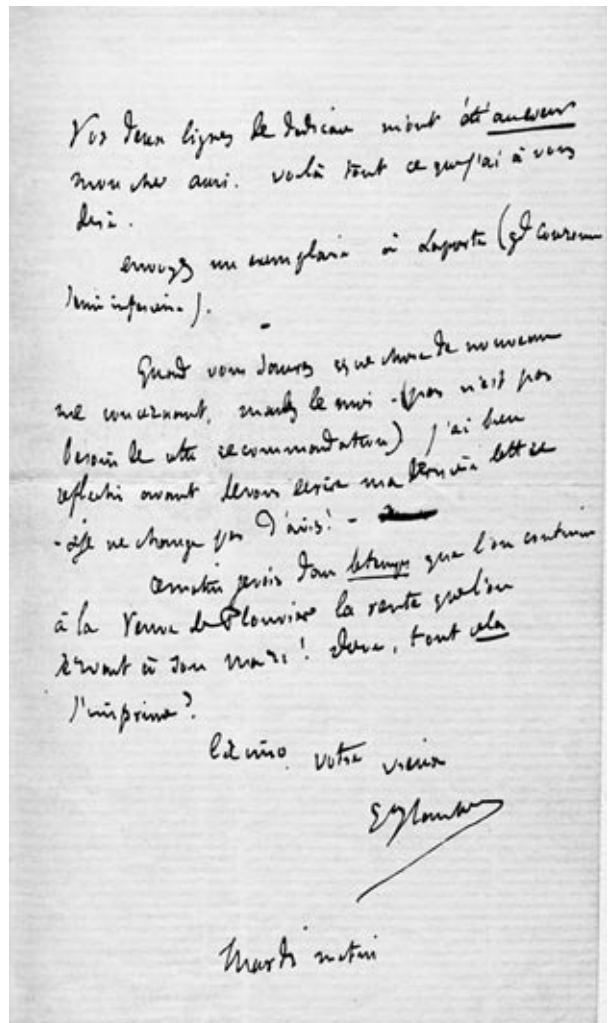 Vos deux lignes de dédicace m'ont été au cœur
mon cher ami. voilà tout ce que j'ai à vous
dire.
envoyez un exemplaire à Laporte (gd couronne
Seine inférieure).
Quand vous saurez qque chose de nouveau
me concernant, mandez le moi - (pas n'est pas
besoin de cette recommandation) j'ai bien
réfléchi avant de vous écrire ma dernière lettre
- & je ne change pas d'avis! -
ce matin je vois dans le temps que l'on continue
à la Veuve de Plouvier la rente que l'on
servait à son mari! donc, tout cela
s'imprime?
votre vieux
G Flaubert
Mardi matin